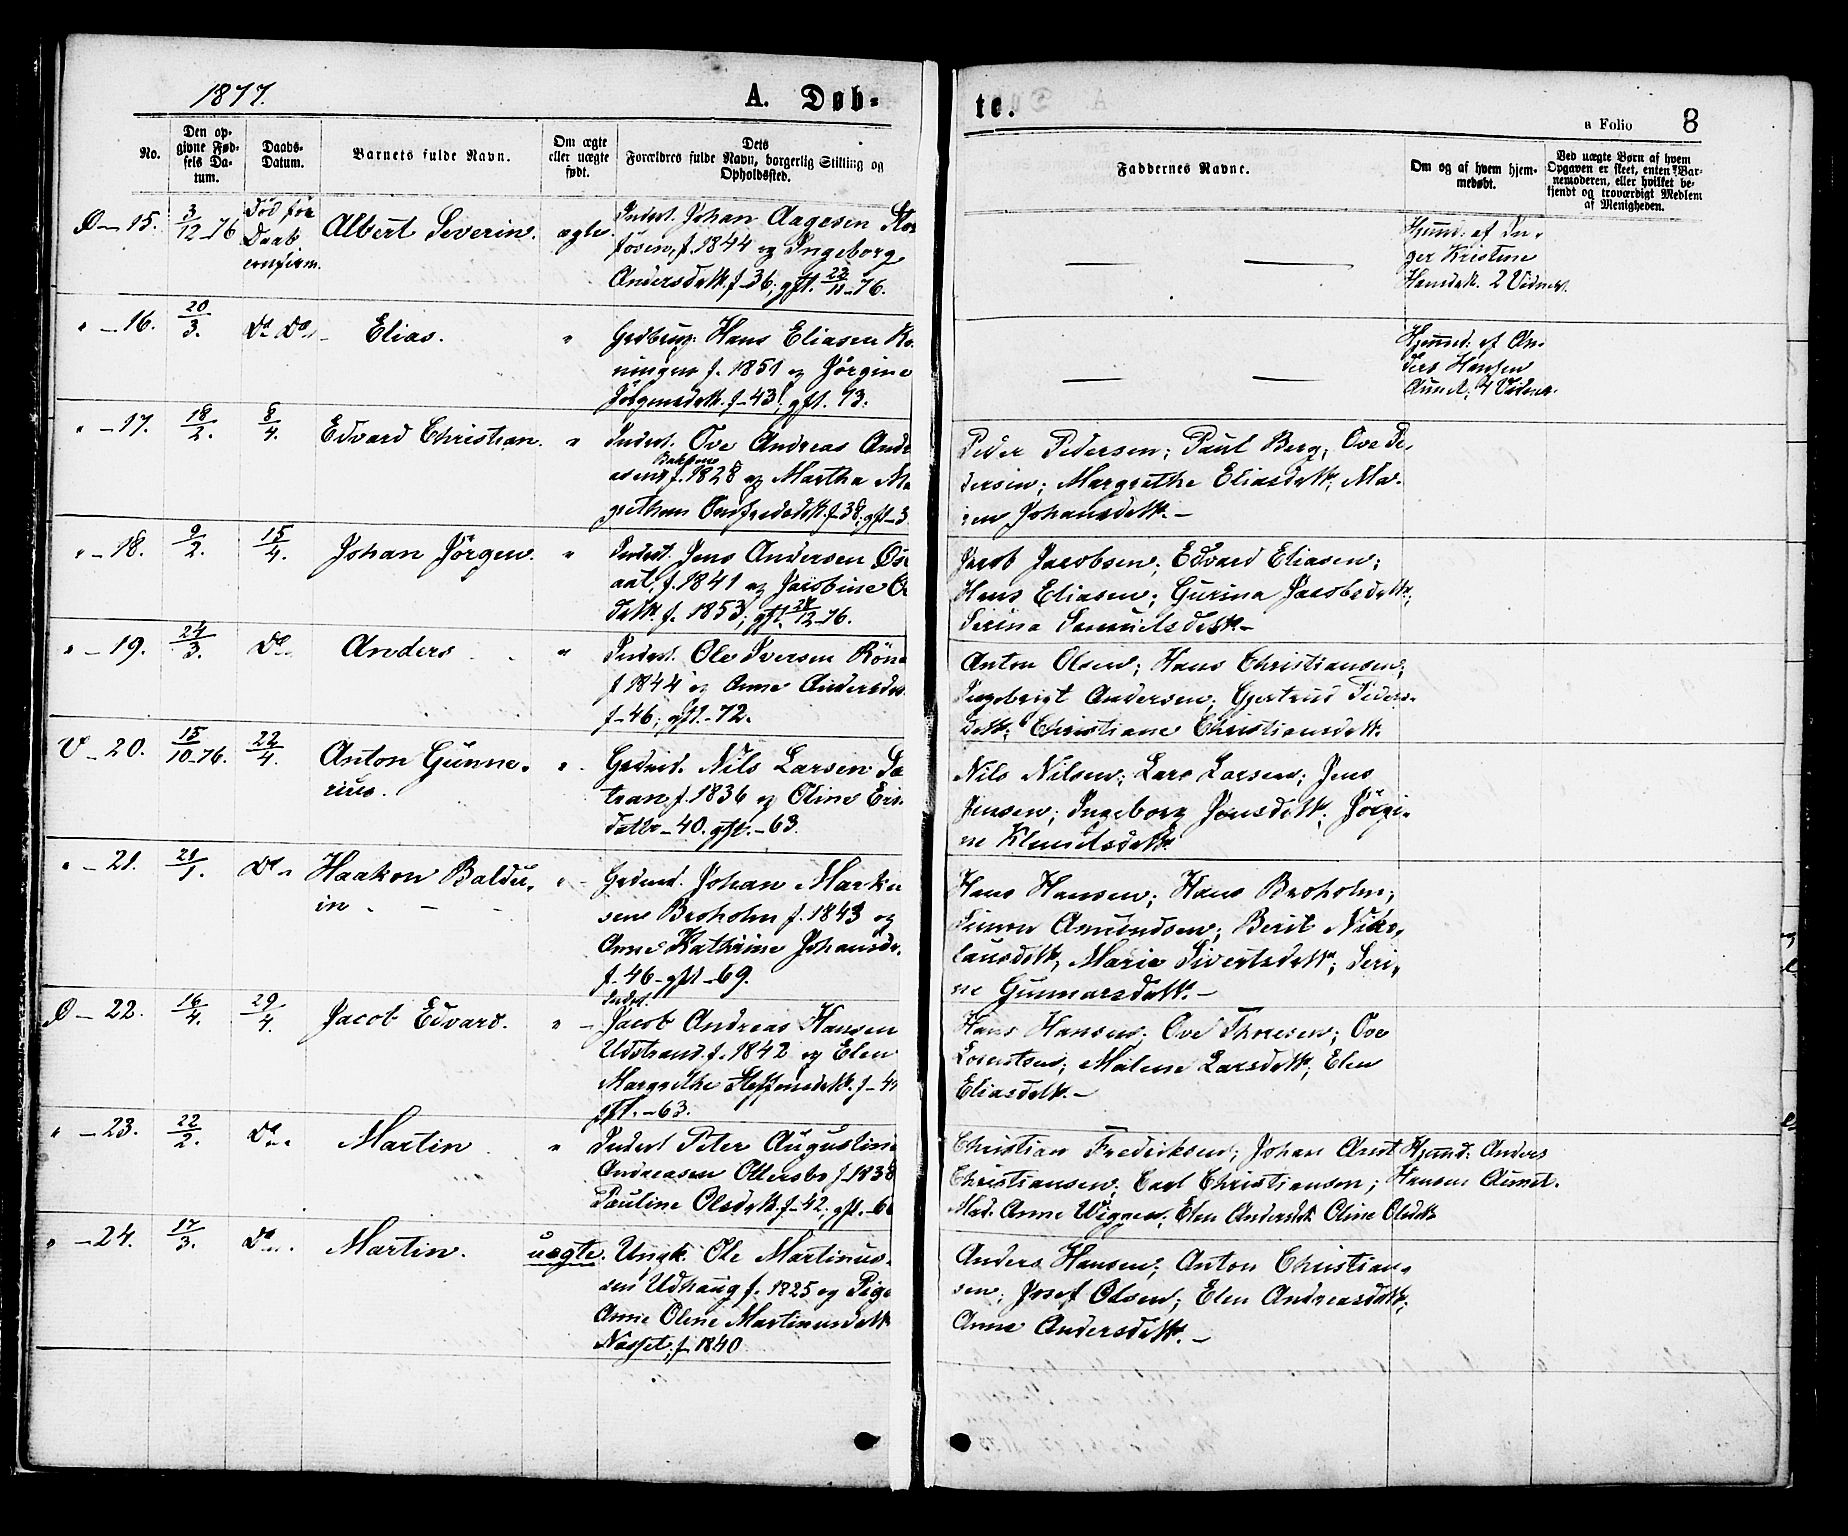 1877.
A. Døb-
te.
a Folio
8
No.
Den op-
givne Fød-
sels Da-
tum.
Daabs-
Datum.
Barnets fulde Navn.
Om ægte
eller uægte
født.
Dets
Forældres fulde Navn, borgerlig Stilling og
Opholdssted.
Faddernes Navne.
Om og af hvem hjem-
medøbt.
Ved uægte Børn af hvem
Opgaven er skeet, enten Bar-
nemoderen, eller hvilket be-
kjendt og troværdigt Medlem
af Menigheden.
15.
3/12-76
Død før
Daab.
Albert Severin.
ægte.
Inderst. Johan Aagesen
f. 1844 og Ingeborg
Andersdatt. f-36; gft. 22/11-76.
Hjemd. af In-
ger Kristine
Hansdatt. 2 Vidner.
" - 16.
20/3.
Do Do
Elias.
"
Gedbrug. Hans Eliasen
f. 1851 og Jørgine
f-43; gft. 73.
Hjemmed. af An-
ders Hansen
Aunet, 4 Vidner.
" - 17.
18/2.
8/4.
Edvard Christian.
"
Inderst. Ove Andreas
f. 1828 og Martha
f-38; gft-
Peder Pedersen; Paul Berg, Ove Pe-
dersen; Margrethe Eliasdatt, Ma-
ren Johansdatt.-
" - 18.
9/2.
15/4.
Johan Jørgen.
"
Inderst. Jens Andersen
f. 1841 og Jacobine
datt. f. 1853; gft. /12-76.
Jacob Jacobsen; Edvard Eliasen;
Hans Eliasen; Gurina Jacobsdatt;
Serina Samuelsdatt.-
" - 19.
24/3.
Do
Anders
"
Inderst. Ole Iversen
f 1844 og Anne
f-46; gft.-72.
Anton Olsen; Hans Christiansen;
Ingebrigt Andersen; Gjertrud Peders-
datt; Christiane Christiansdatt.
V - 20.
15/10-76.
22/4.
Anton Gunne-
rius.
"
Gedmd. Nils Larsen
f. 1836 og Oline
datt. -40. gft.-63.
Nils Nilsen; Lars Larsen; Jens
Jensen; Ingeborg Jensdatt; Jørgi-
ne Klemetsdatt.
" - 21.
21/1.
Do
Haakon Baldu-
in
"
Gedmd. Johan
sen Broholm f. 1843 og
Anne Kathrine
f-46-gft-69.
Hans Hansen; Hans Broholm;
Simon Amundsen; Berit Nico-
lausdatt, Marie Sivertsdatt; Seri-
ne Gunnarsdatt.-
22.
16/4.
29/4.
Jacob Edvard.
"
Inderst.
Jacob Andreas Hansen
Udstrand. f. 1842 og Elen
Margrethe Steffensdatt. f-
gft.-63.
Hans Hansen; Ove Thoresen; Ove
Lorentsen; Malene Larsdatt; Elen
Eliasdatt.-
" - 23.
22/2.
Do
Martin
"
Inderst Peter
Andreasen Ottersbo f-1838
Pauline Olsdatt. f-42; gft.-
Christian Fredriksen; Johan Arnt
Christiansen; Carl Christiansen;
Mad. Anne Wiggen; Elen Andersdatt Oline Olsdatt
Hjemd: Anders
Hansen Aunet.
" - 24.
17/3.
Do
Martin.
uægte.
Ungk. Ole Martinus-
sen Udhaug f. 1825 og Pige
Anne Oline Martinusdatt
Næsset; f-1840
Anders Hansen; Anton Christian-
sen; Josef Olsen; Elen Andreasdatt;
Anne Andersdatt.-